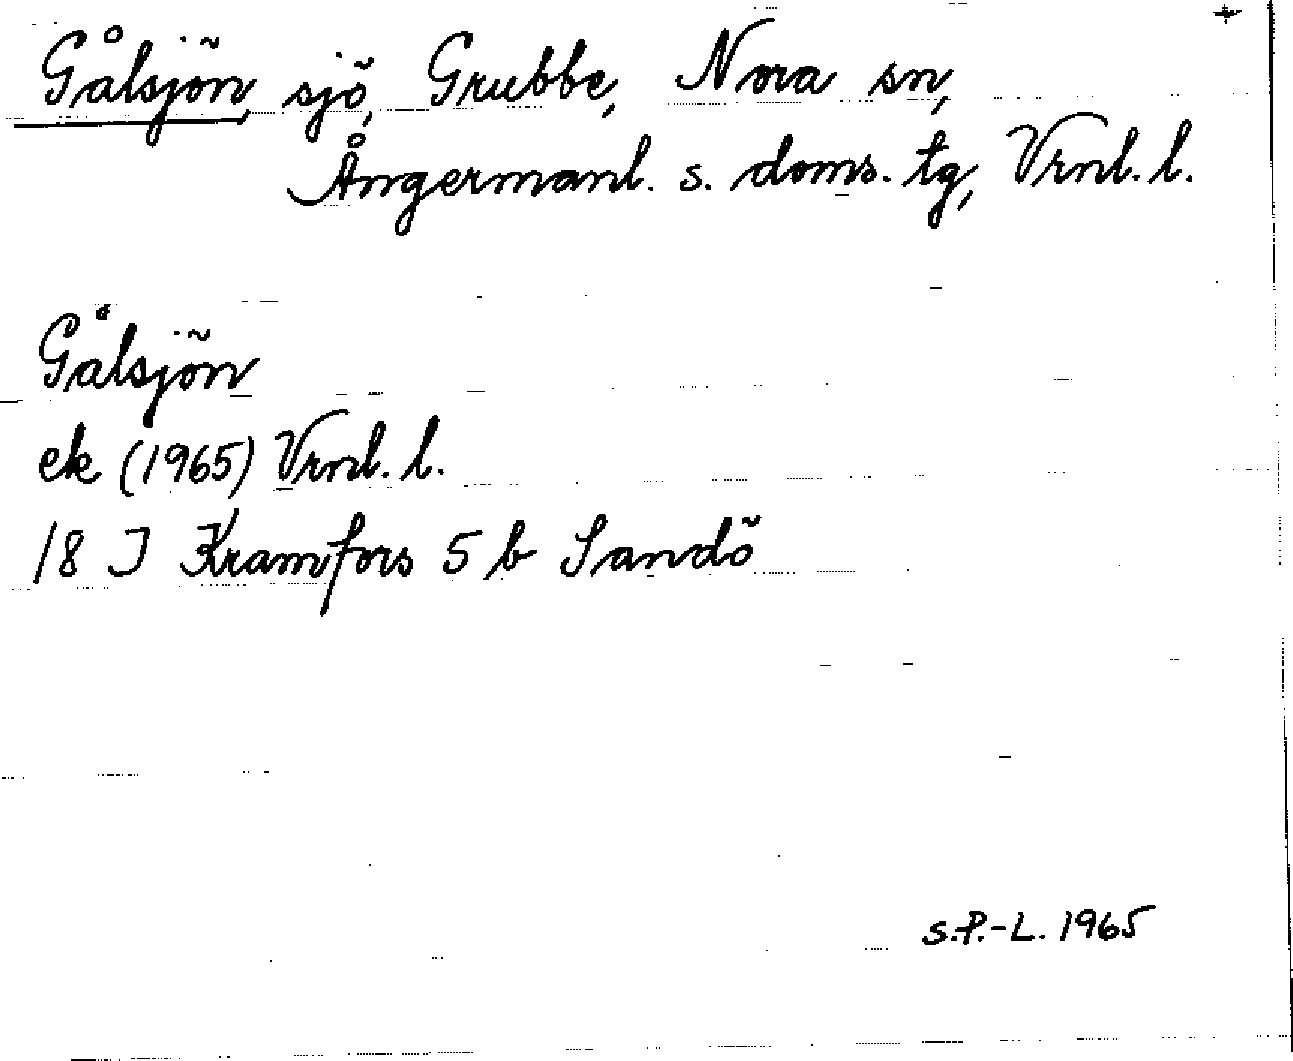 +
Gålsjön, sjö, Grubbe, Nora sn,
Ångermanl. s. doms. tg, Vrnl. l.
Gålsjön
ek (1965) Vrnl. l.
18 J Kramfors 5 b Sandö
S.P.-L. 1965